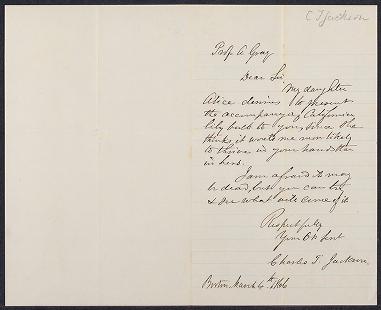 C T Jackson
Prof. A Gray
Dear Sir
My daughter
Alice desires to present
the accompanying California
lily bulb to you, since she
thinks it would be more likely
to thrive in your hands than
in hers.
I am afraid it may
be dead, but you can try
& see what will come of it
Respectfully
Your Ob Svt
Charles T. Jackson
Boston March 6th 1866